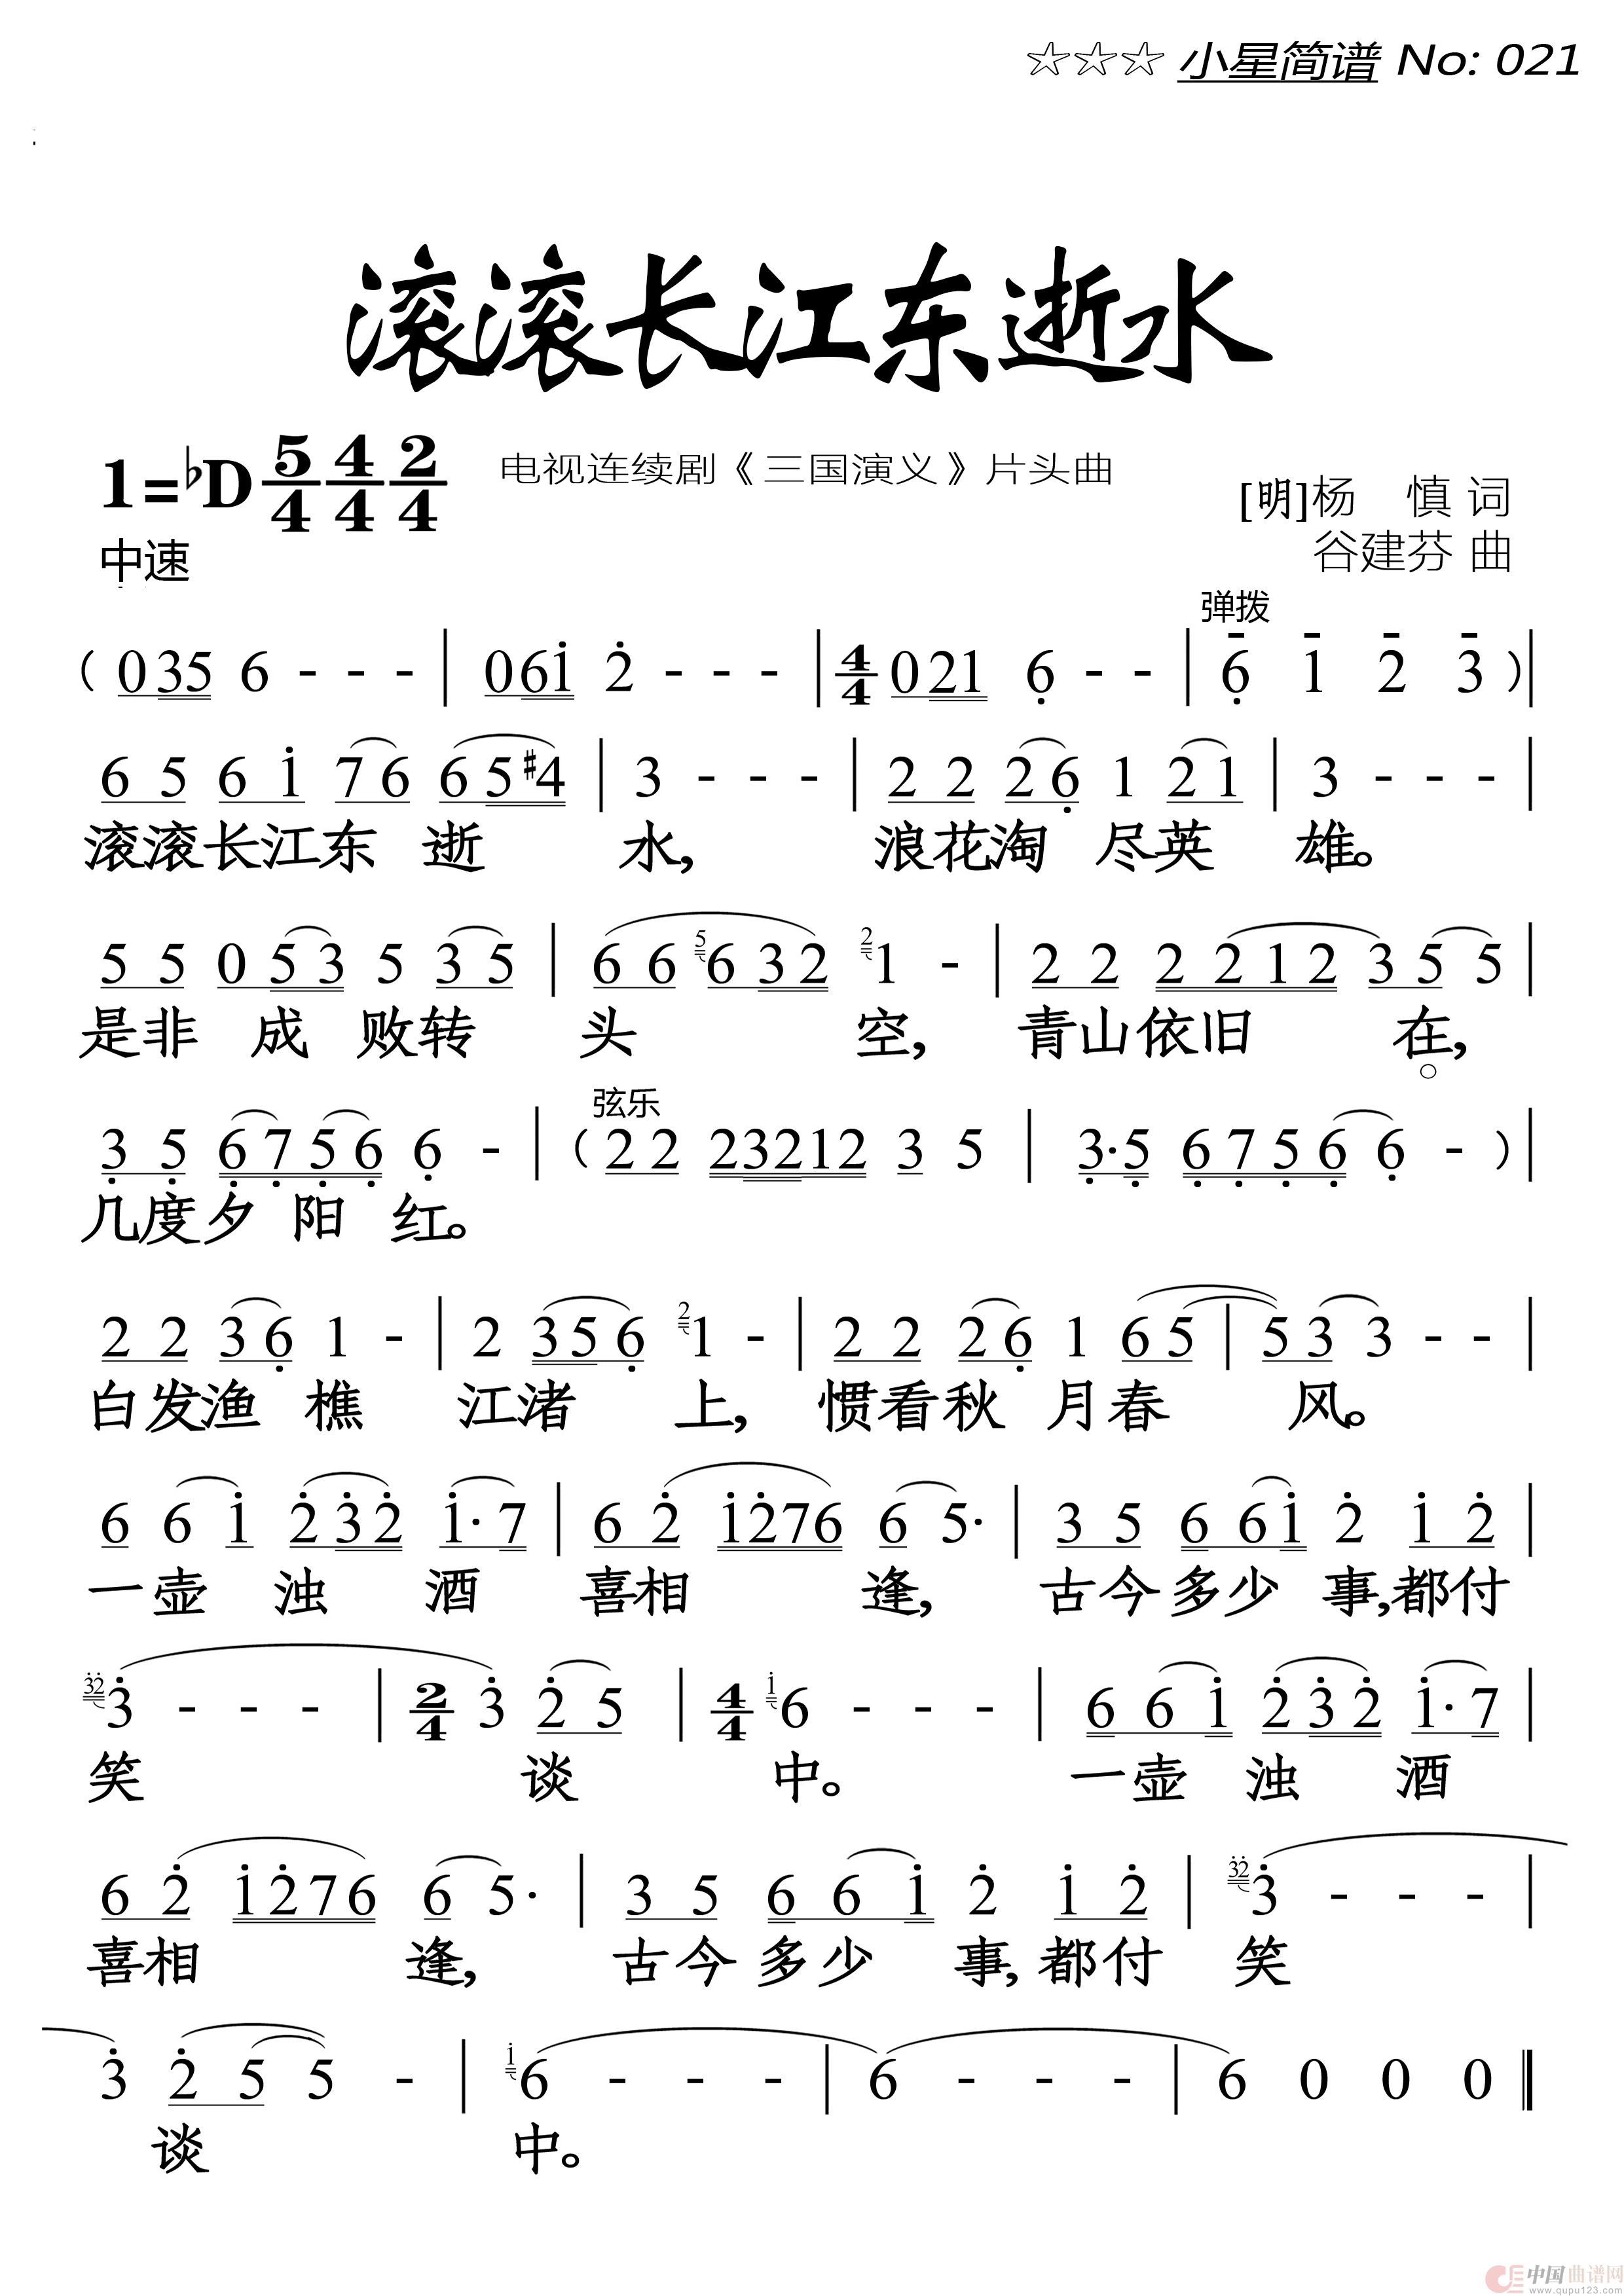 ☆☆☆ 小星简谱 No: 021
滚滚长江东逝水
1=♭D 5/4 4/4 2/4 电视连续剧《三国演义》片头曲 [明]杨 慎 词
中速 谷建芬 曲
弹拨
( 0 3 5 6 - - - | 0 6 i 2̇ - - - | 4/4 0 2 1 6̣ - - | 6̣ 1 2 3 ) |
6 5 6 i 7 6 6 5 #4 | 3 - - - | 2 2 2 6̣ 1 2 1 | 3 - - - |
滚滚长江东 逝 水, 浪花淘 尽英 雄。
5 5 0 5 3 5 3 5 | 6 6 5 6 3 2 2 1 - | 2 2 2 2 1 2 3 5 5 |
是非 成 败转 头 空, 青山依旧 在,
弦乐
3̣ 5̣ 6̣ 7̣ 5̣ 6̣ 6̣ - | ( 2 2 2 3 2 1 2 3 5 | 3̣· 5̣ 6̣ 7̣ 5̣ 6̣ 6̣ - ) |
几度夕 阳 红。
2 2 3 6̣ 1 - | 2 3 5 6̣ 2 1 - | 2 2 2 6̣ 1 6 5 | 5 3 3 - - |
白发渔 樵 江渚 上, 惯看秋 月春 风。
6 6 i 2̇ 3̇ 2̇ i· 7 | 6 2̇ i 2̇ 7 6 6 5· | 3 5 6 6 i 2̇ i 2̇ |
一壶 浊 酒 喜相 逢, 古今多少 事,都付
3̇ 2̇ 3̇ - - - | 2/4 3̇ 2̇ 5 | 4/4 i 6 - - - | 6 6 i 2̇ 3̇ 2̇ i· 7 |
笑 谈 中。 一壶 浊 酒
6 2̇ i 2̇ 7 6 6 5· | 3 5 6 6 i 2̇ i 2̇ | 3̇ 2̇ 3̇ - - - |
喜相 逢, 古今多少 事,都付 笑
3̇ 2̇ 5 5 - | i 6 - - - | 6 - - - | 6 0 0 0 ‖
谈 中。
中国曲谱网
www.qupu123.com